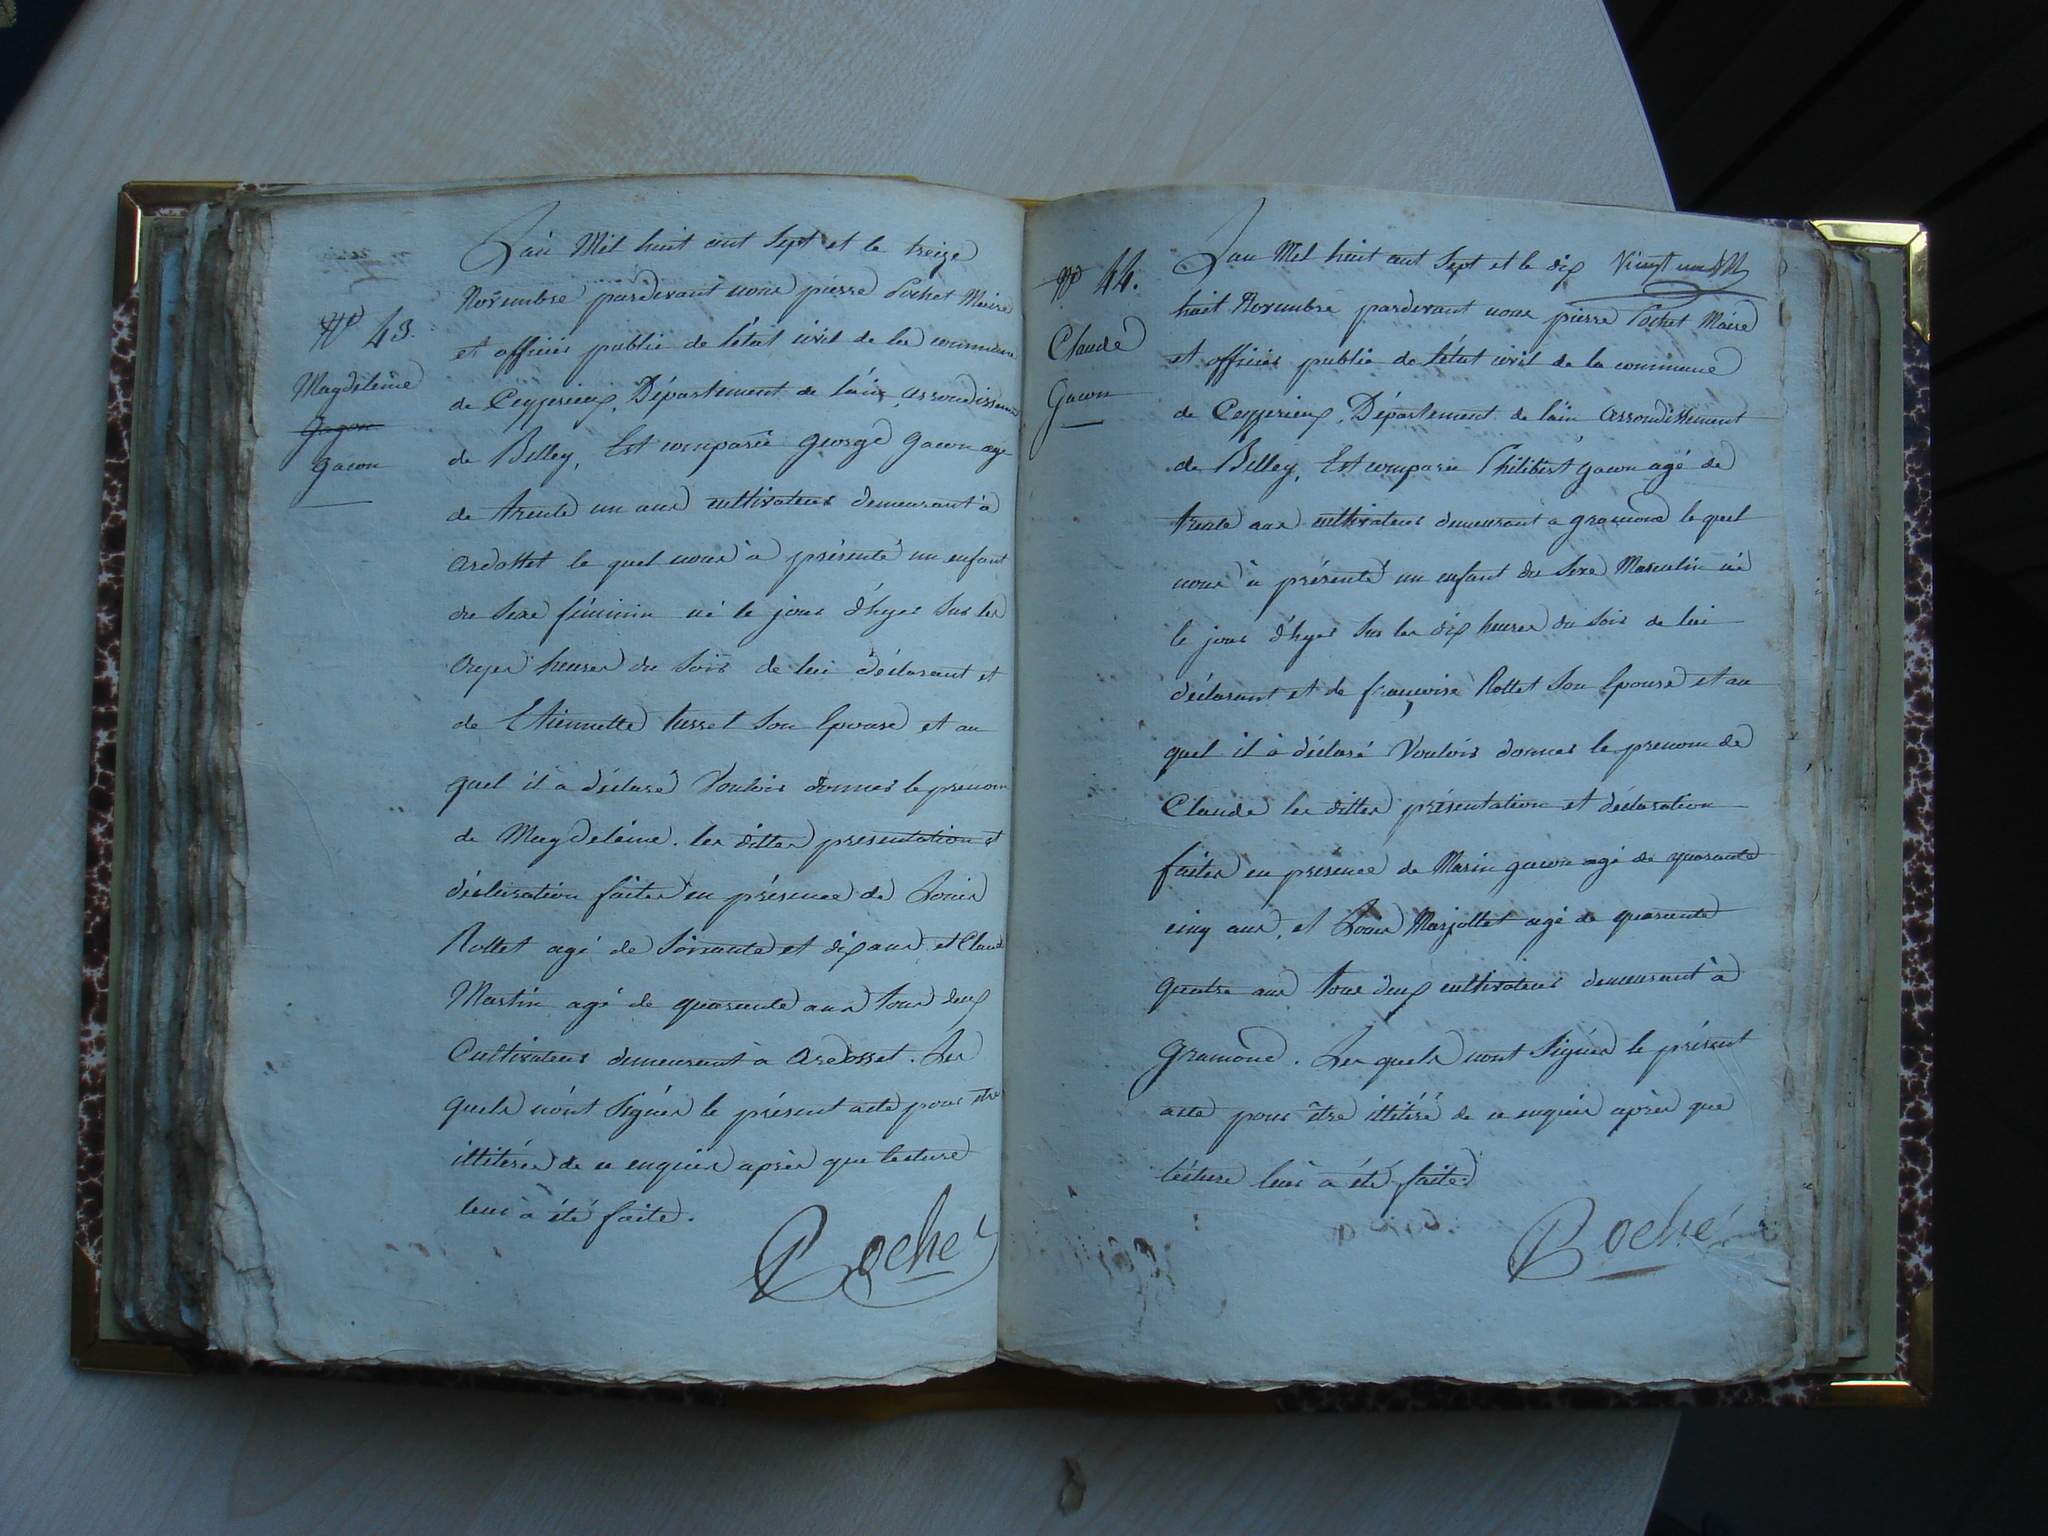 N° 43.
Magdeleine
Gagon
gacon
Lan Mil huit cent Sept et le treize
Novembre pardevant nous pierre Pochet Maire
et officier public de l'état civil de la commune
de Ceyzerieux, Département de l'ain, arrondissement
de Belley, Est comparu George gacon age
de trente un ans cultivateur demeurant à
ardosset le quel nous à présenté un enfant
du Sexe féminin né le jour d'hyer Sur les
onze heures du Soir de lui déclarant et
de Etiennette Russet Son Epouse et au
quel il a déclaré Vouloir donner le prenom
de Magdeleine. les dittes presentation et
déclaration faites en présence de Louis
Rollet agé de Soixante et dix ans, et Claude
Martin agé de quarante ans tous deux
Cultivateur demeurant a Ardosset. Les
quels n'ont Signés le présent acte pour être
illiterés de ce enquis après que lecture
leur à été faite.
Poché
Vingt un
N° 44.
Claude
Gacon
Lan Mil huit cent Sept et le dix
huit Novembre pardevant nous pierre Pochet Maire
et officier public de l'état civil de la commune
de Ceyzerieux, Département de l'ain arrondissement
de Belley, Est comparu Philibert gacon agé de
trente ans cultivateur demeurant a gramond le quel
nous à présenté un enfant du Sexe Masculin né
le jour d'hyer Sur les dix heures du Soir de lui
déclarant et de françoise Rollet Son Epouse et au
quel il à déclaré Vouloir donner le prenom de
Claude les dittes présentation et déclaration
faites en présence de Marin gacon agé de quarante
cinq ans, et Louis Marjollet agé de quarante
quatre ans tous deux cultivateur demeurant à
gramond. Les quels n'ont Signés le présent
acte pour être illitéré de ce enquis après que
lécture leur a été faite.
Poché